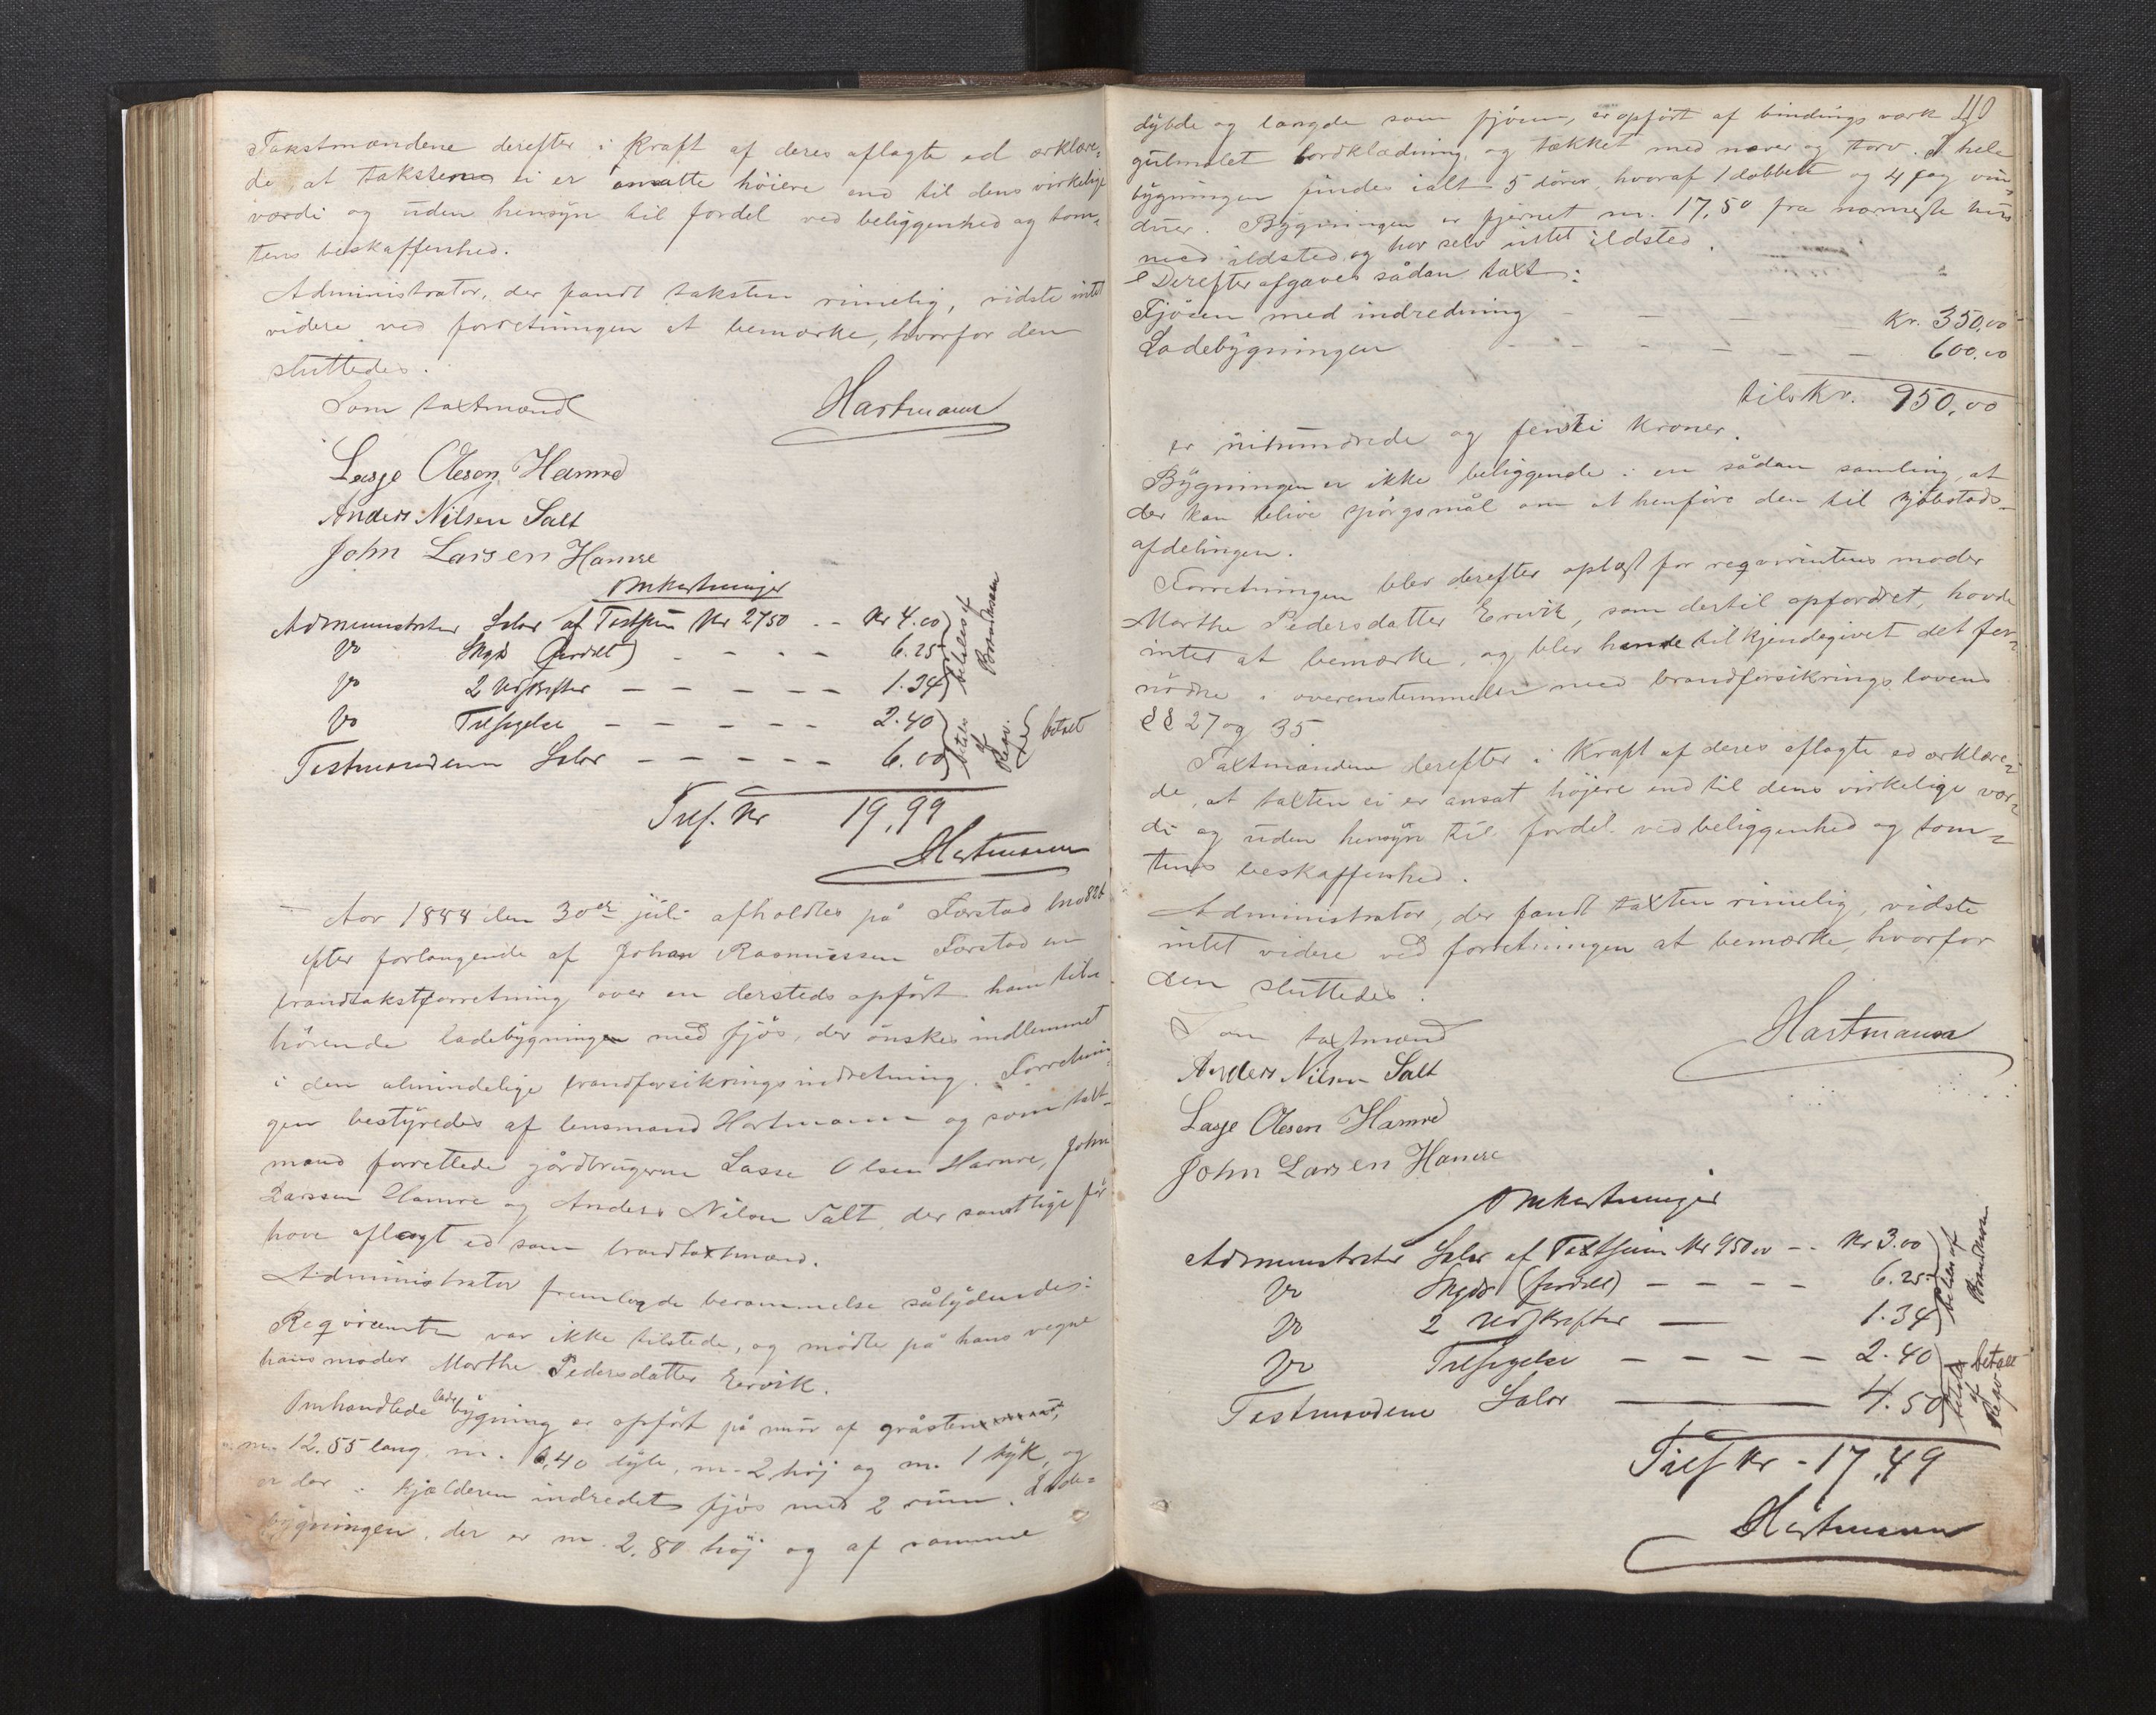 Takstmændene derefter i kraft af deres aflagte ed erklære-
de, at taksterne ei er ansatte höiere end til dens virkelige
værdi og uden hensyn til fordel ved beliggenhed og tom-
tens beskaffenhed.
Administrator, der fandt taksten rimelig, vidste intet
videre ved forretningen at bemærke, hvorfor den
sluttedes.
Som taxtmænd
Hartmann
Lasse Olesen Hamre
Anders Nilsen Salt
John Larsen Hamre
Omkostninger
Administrator Salær af Taxtsum Kr 2750 - - Kr 4.00
Do Skyds (fordelt) - - - - 6.25
Do 2 Udskrifter - - - - - 1.34
Do Tilsigelse - - - - - 2.40
Taxtmændenes Salær - - - - - 6.00
betales af Brandkassen
betales af Reqv.
betalt
Tils. Kr 19,99
Hartmann
Aar 1888 den 30te juli afholdtes på Færstad bno 82b
efter forlangende af Johan Rasmussen Færstad en
brandtakstforretning over en dersteds opfört ham til-
hörende ladebygningen med fjös, der önskes indlemmet
i den almindelige brandforsikringsindretning. Forretnin-
gen bestyredes af lensmand Hartmann og som taxt-
mænd forrettede gårdbrugerne Lasse Olsen Hamre, John
Larssen Hamre og Anders Nilsen Salt, der samtlige för
have aflagt ed som brandtaxtmænd.
Administrator fremlagde berammelse sålydendes:
Reqvirenten var ikke tilstede, og mödte på hans vegne
hans moder Marthe Pedersdatter Eervik.
Omhandlede ladebygning er opfört på mur af gråsten,
m. 12.55 lang, m. 6,40 dyb, m. 2 höj og m. 1 tyk, og
er der i kjælderen indredet fjös med 2 rum. Lade-
bygningen, der er m. 2,80 höj og af samme
110
dybde og længde som fjösen, er opfört af bindingsværk og
gulmalet bordklædning og tækket med næver og torv. I hele
bygningen findes ialt 5 dörer, hvoraf 1 dobbelt og 4 fag vin-
duer. Bygningen er fjernet m. 17,50 fra nærmeste hus
med ildsted og har selv intet ildsted.
Derefter afgaves sådan taxt:
Fjösen med indredning - - - - - Kr. 350,00
Ladebygningen - - - - - - 600,00
tils Kr. 950,00
er nihundrede og femti kroner.
Bygningen er ikke beliggende i en sådan samling, at
der kan blive spörgsmål om at henföre den til kjöbstads-
afdelingen.
Forretningen blev derefter oplæst for reqvirentens moder
Marthe Pedersdatter Ervik, som dertil opfordret, havde
intet at bemærke, og blev hende tilkjendegivet det for-
nödne i overenstemmelse med brandforsikringslovens
§§ 27 og 35
Taxtmændene derefter i kraft af deres aflagte ed erklære-
de, at taxten ei er ansat höjere end til dens virkelige vær-
di og uden hensyn til fordel ved beliggenhed og tom-
tens beskaffenhed.
Administrator, der fandt taxten rimelig, vidste
intet videre ved forretningen at bemærke, hvorfor
den sluttedes.
Som taxtmænd
Hartmann
Anders Nilsen Salt
Lasse Olesen Hamre
John Larsen Hamre
Omkostninger
Administrator Salær af Taxtsum Kr 950 00 - - Kr 3.00
Do Skyds (fordelt) - - - - 6.25
Do 2 Udskrifter - 1.34
Do Tilsigelse - - - - 2.40
Taxtmændene Salær - 4.50
betales af Brandkassen
betales af Reqv
betalt
Tils Kr - 17,49
Hartmann